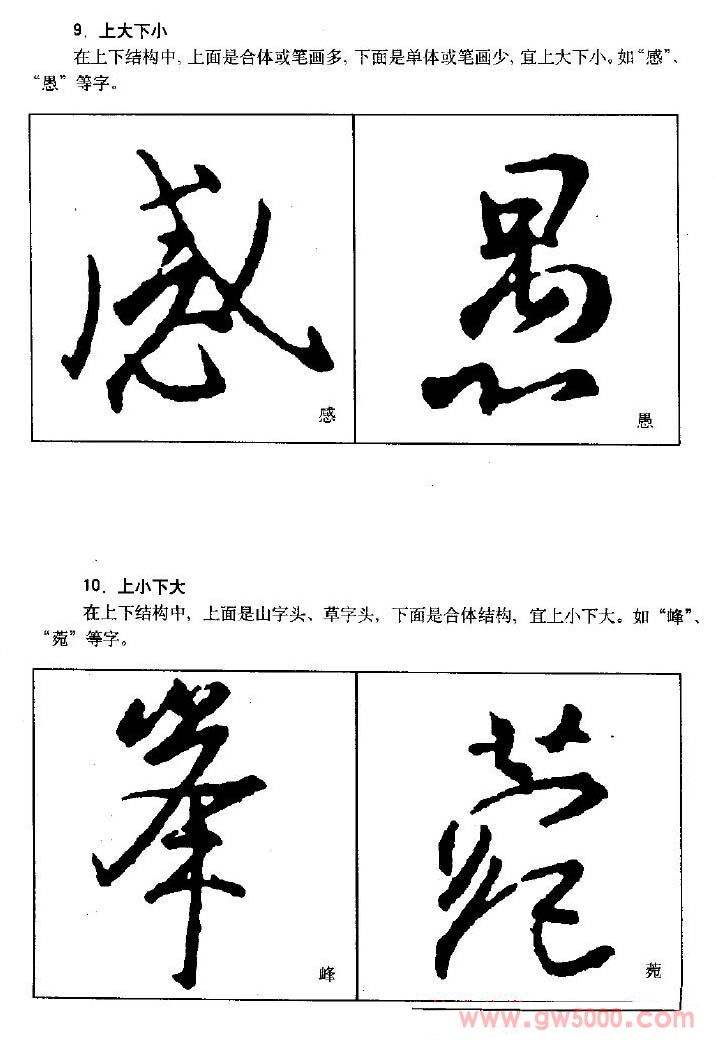 9. 上大下小
在上下结构中, 上面是合体或笔画多, 下面是单体或笔画少, 宜上大下小。如“感”、
“愚” 等字。
感 愚
感 愚
10. 上小下大
在上下结构中, 上面是山字头、草字头, 下面是合体结构, 宜上小下大。如 “峰”、
“菀” 等字。
峰 菀
峰 菀
www.gw5000.com